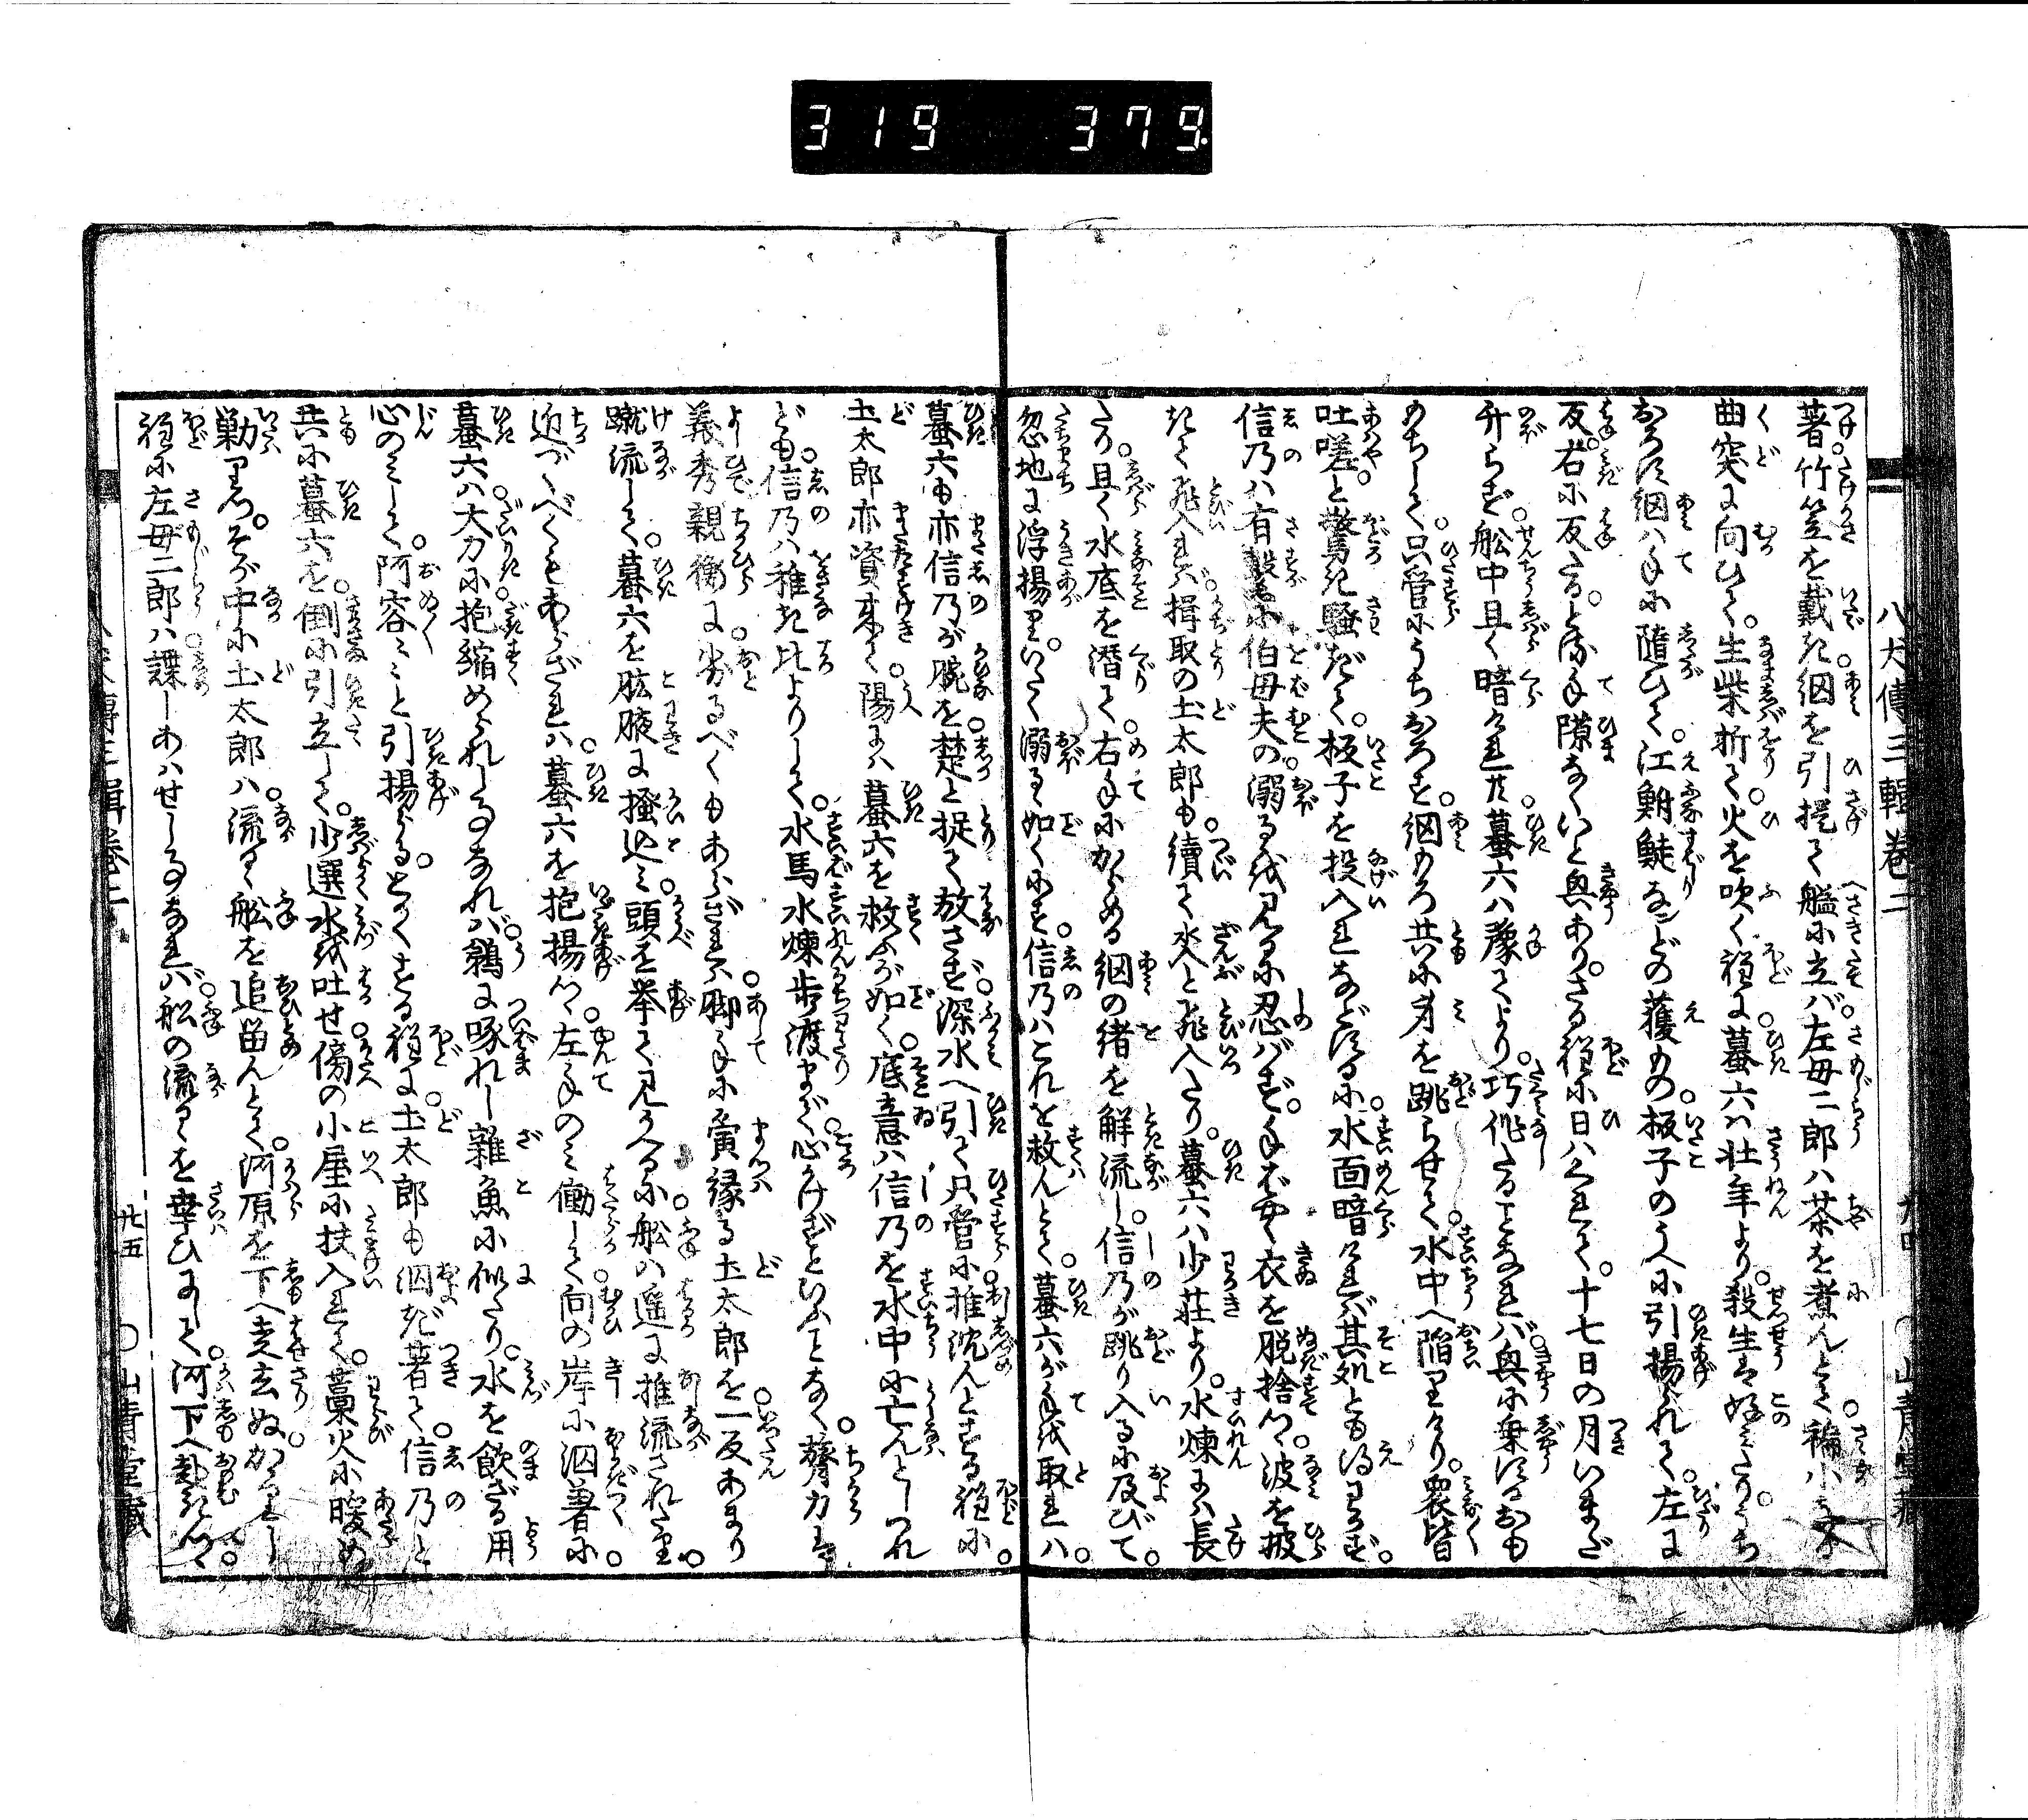 319 379.
八犬傳三輯卷二
山青堂藏
著。竹笠を戴き。網を引提て艫に立ば。左母二郎は茶を煮んとて。褊小なる
曲突に向ひて。生柴折て。火を吹く程に。蟇六は壮年より。殺生を好みたり。うち
おろす網は手に隨ひて。江鮒鮏なンどの獲もの。板子のうへに引揚られて。左に
反。右に反たる。とる手隙なくいと興あり。さる程に日はくれて。十七日の月いまだ
升らず。舩中且く暗ければ。蟇六は豫てより。巧作たることなれば。興に乗ずるおも
もちして。只管にうちおろす。網もろ共に身を跳らせて。水中へ陥りけり。衆皆
吐嗟と驚き騒ぎて。板子を投入れなどするに。水面暗ければ其処とも得わかず。
信乃は有繋に伯母夫の。溺るを見るに忍ばず。手ばやく衣を脱捨つ。波を披
きて飛入れば。揖取の土太郎も。續て㳀と飛入たり。蟇六は少荘より。水煉には長
たり。且く水底を潜て。右手にからめる網の緒を解流し。信乃が跳り入るに及びて。
忽地に浮揚り。いたく溺るゝ如くにす。信乃はこれを救んとて。蟇六が手を取れば。
蟇六も亦信乃が腕を。楚と捉て放さず。深水へ引て只管に。推沈んとする程に。
土太郎亦資来て。陽には蟇六を救ふが如く。底意は信乃を水中に亡んとしつれ
ども。信乃は稚き比よりして。水馬水煉歩渡まで。心がけずといふことなく。膂力は
義秀親衡に。劣るべくもあらざれば。脚手に夤縁る土太郎を。一反あまり
蹴流して。蟇六を肱腋に掻込み。頭を挙て見かへるに。舩は遥に推流されたり。
近づくべくもあらざれば。蟇六を抱揚つ。左手のみ働して。向の岸に泅著に。
蟇六は大力に抱縮められしかなれば。鵜に啄れし雑魚に似たり。水を飲ざる用
心のみして。阿容々々と引揚らる。とかくする程に。土太郎も泅ぎ著て。信乃と
共に蟇六を。倒に引立して。少選水を吐せ。傍の小屋に扶入れて。藁火に暖め
勦りつ。そが中に土太郎は。流るゝ舩を追畄んとて。河原を下へ走去ぬ。かゝりし
程に左母二郎は。諜しあはせし事なれば。舩の流るゝを幸ひにして。河下へ赴きつ。
廿五
山青堂藏